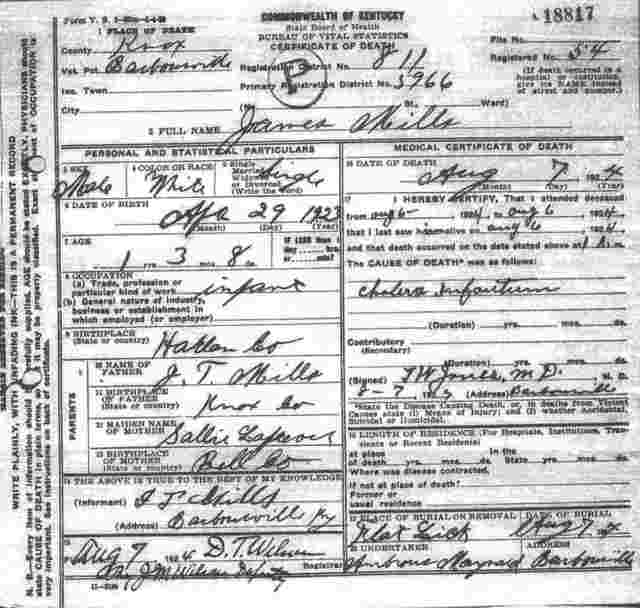 Form V. S.
COMMONWEALTH OF KENTUCKY
18817
1 PLACE OF DEATH
State Board of Health
BUREAU OF VITAL STATISTICS
CERTIFICATE OF DEATH
File No.
County Knox
Registered No. 54
Vot. Pct. Barbourville
Registration District No. 811
(If death occurred in a hospital or institution, give its NAME instead of street and number.)
Inc. Town
Primary Registration District No. 5966
B
City (No. St., Ward)
2 FULL NAME James Mills
PERSONAL AND STATISTICAL PARTICULARS
3 SEX Male
4 COLOR OR RACE White
5 Single Married Widowed or Divorced (Write the word) Single
6 DATE OF BIRTH
Apr 29 1923
(Month) (Day) (Year)
7 AGE
1 yrs. 3 mos. 8 ds.
IF LESS than 1 day hrs. or min.?
8 OCCUPATION
(a) Trade, profession or particular kind of work infant
(b) General nature of industry, business or establishment in which employed (or employer)
9 BIRTHPLACE
(State or country) Harlan Co
PARENTS
10 NAME OF FATHER J. T. Mills
11 BIRTHPLACE OF FATHER
(State or country) Knox Co
12 MAIDEN NAME OF MOTHER Sallie
13 BIRTHPLACE OF MOTHER
(State or country) Bell Co
14 THE ABOVE IS TRUE TO THE BEST OF MY KNOWLEDGE
(Informant) J T Mills
(Address) Barbourville Ky
15
Aug 7 1924 D. T. Wilson
J M Wilson Deputy Registrar
MEDICAL CERTIFICATE OF DEATH
16 DATE OF DEATH
Aug 7 1924
(Month) (Day) (Year)
17 I HEREBY CERTIFY, That I attended deceased
from aug 6 1924 to aug 6 1924
that I last saw him alive on aug 6 1924
and that death occurred on the date stated above at m.
The CAUSE OF DEATH* was as follows:
Cholera Infantum
(Duration) yrs. mos. ds.
Contributory
(Secondary)
(Duration) yrs. mos. ds.
(Signed) T W Jones, M.D. M. D.
8-7 192 (Address) Barbourville
*State the Disease Causing Death, or, in deaths from Violent Causes state (1) Means of Injury; and (2) whether Accidental, Suicidal or Homicidal.
18 LENGTH OF RESIDENCE (For Hospitals, Institutions, Transients or Recent Residents)
At place of death yrs. mos. ds. In the State yrs. mos. ds.
Where was disease contracted,
if not at place of death?
Former or
usual residence
19 PLACE OF BURIAL OR REMOVAL DATE OF BURIAL
Flat Lick Aug 7 24
20 UNDERTAKER ADDRESS
Ambrous Maynard Barbourville